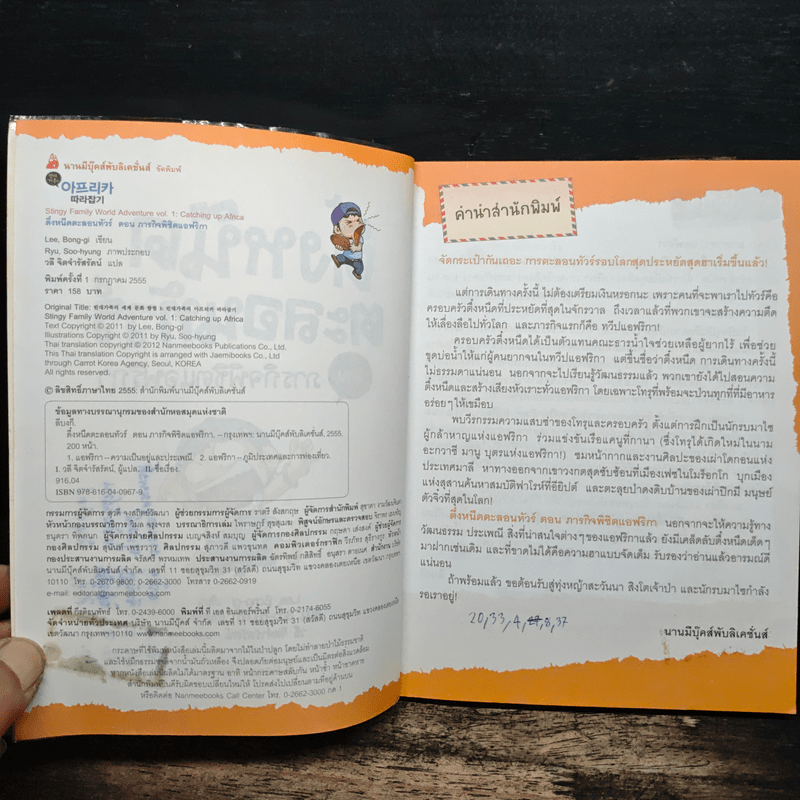 นานมีบุ๊คส์พับลิเคชั่นส์ จัดพิมพ์
아프리카
따라잡기
Stingy Family World Adventure vol. 1: Catching up Africa
ตึ๋งหนืดตะลอนทัวร์ ตอน ภารกิจพิชิตแอฟริกา
Lee, Bong-gi เขียน
Ryu, Soo-hyung ภาพประกอบ
วลี จิตจำรัสรัตน์ แปล
พิมพ์ครั้งที่ 1 กรกฎาคม 2555
ราคา 158 บาท
Original Title: 빈대가족의 세계 문화 탐험 1: 빈대가족의 아프리카 따라잡기
Stingy Family World Adventure vol. 1: Catching up Africa
Text Copyright © 2011 by Lee, Bong-gi
Illustrations Copyright © 2011 by Ryu, Soo-hyung
Thai translation copyright © 2012 Nanmeebooks Publications Co., Ltd.
This Thai translation Copyright is arranged with Jaemibooks Co., Ltd
through Carrot Korea Agency, Seoul, KOREA
All rights reserved.
© ลิขสิทธิ์ภาษาไทย 2555: สำนักพิมพ์นานมีบุ๊คส์พับลิเคชั่นส์
ข้อมูลทางบรรณานุกรมของสำนักหอสมุดแห่งชาติ
ลีบงกี.
ตึ๋งหนืดตะลอนทัวร์ ตอน ภารกิจพิชิตแอฟริกา.-- กรุงเทพฯ: นานมีบุ๊คส์พับลิเคชั่นส์, 2555.
200 หน้า.
1. แอฟริกา -- ความเป็นอยู่และประเพณี. 2. แอฟริกา -- ภูมิประเทศและการท่องเที่ยว.
I. วลี จิตจำรัสรัตน์, ผู้แปล. II. ชื่อเรื่อง.
916.04
ISBN 978-616-04-0967-9
กรรมการผู้จัดการ สุวดี จงสถิตย์วัฒนา ผู้ช่วยกรรมการผู้จัดการ
หัวหน้ากองบรรณาธิการ
10110 โทร. 0-2670-9800, 0-2662-3000 โทรสาร 0-2662-0919
e-mail: editorial@nanmeebooks.com
เพลตที่ กีรติอนพัทธ์ โทร. 0-2439-6000 พิมพ์ที่ ที เอส อินเตอร์พริ้นท์ โทร. 0-2174-6055
จัดจำหน่ายทั่วประเทศ บริษัท นานมีบุ๊คส์ จำกัด เลขที่ 11 ซอยสุขุมวิท 31 (สวัสดี) ถนนสุขุมวิท
เขตวัฒนา กรุงเทพฯ 10110 www.nanmeebooks.com
กระดาษที่ใช้พิมพ์หนังสือเล่มนี้ผลิตจากไม้ในป่าปลูก โดยไม่ทำลายป่าไม้ธรรมชาติ
หรือติดต่อ Nanmeebooks Call Center โทร. 0-2662-3000 กด 1
คำนำสำนักพิมพ์
จัดกระเป๋ากันเถอะ การตะลอนทัวร์รอบโลกสุดประหยัดสุดฮาเริ่มขึ้นแล้ว!
แต่การเดินทางครั้งนี้ ไม่ต้องเตรียมเงินหรอกนะ เพราะคนที่จะพาเราไปทัวร์คือ
ครอบครัวตึ๋งหนืดที่ประหยัดที่สุดในจักรวาล ถึงเวลาแล้วที่พวกเขาจะสร้างความตึ๋ด
ให้เลื่องลือไปทั่วโลก และภารกิจแรกก็คือ ทวีปแอฟริกา!
ครอบครัวตึ๋งหนืดได้เป็นตัวแทนคณะธารน้ำใจช่วยเหลือผู้ยากไร้ เพื่อช่วย
ขุดบ่อน้ำให้แก่ผู้คนยากจนในทวีปแอฟริกา แต่ขึ้นชื่อว่าตึ๋งหนืด การเดินทางครั้งนี้
ไม่ธรรมดาแน่นอน นอกจากจะไปเรียนรู้วัฒนธรรมแล้ว พวกเขายังได้ไปสอนความ
ตึ๋งหนืดและสร้างเสียงหัวเราะทั่วแอฟริกา โดยเฉพาะโทรุที่พร้อมจะป่วนทุกที่ที่มีอาหาร
อร่อยๆ ให้เขมือบ
พบวีรกรรมความแสบซ่าของโทรุและครอบครัว ตั้งแต่การฝึกเป็นนักรบมาไซ
ผู้กล้าหาญแห่งแอฟริกา ร่วมแข่งขันเรือแคนูที่กานา (ซึ่งโทรุได้เกิดใหม่ในนาม
อะกวาซี มานู บุตรแห่งแอฟริกา!) ชมหน้ากากและงานศิลปะของเผ่าโดกอนแห่ง
ประเทศมาลี หาทางออกจากเขาวงกตสุดซับซ้อนที่เมืองเฟซในโมร็อกโก บุกเมือง
แห่งสุสานค้นหาสมบัติฟาโรห์ที่อียิปต์ และตะลุยป่าดงดิบบ้านของเผ่าปิกมี มนุษย์
ตัวจิ๋วที่สุดในโลก!
ตึ๋งหนืดตะลอนทัวร์ ตอน ภารกิจพิชิตแอฟริกา นอกจากจะให้ความรู้ทาง
วัฒนธรรม ประเพณี สิ่งที่น่าสนใจต่างๆ ของแอฟริกาแล้ว ยังมีเคล็ดลับตึ๋งหนืดเด็ดๆ
มาฝากเช่นเดิม และที่ขาดไม่ได้คือความฮาแบบจัดเต็ม รับรองว่าอ่านแล้วอารมณ์ดี
แน่นอน
ถ้าพร้อมแล้ว ขอต้อนรับสู่ทุ่งหญ้าสะวันนา สิงโตเจ้าป่า และนักรบมาไซกำลัง
รอเราอยู่!
20,33,4, 8,37
นานมีบุ๊คส์พับลิเคชั่นส์